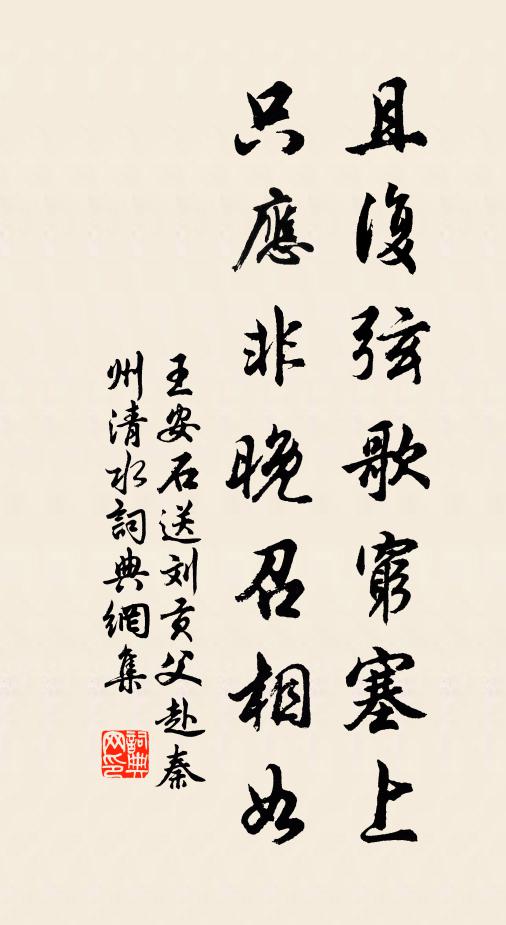 且復弦歌窮塞上
只應非晚召相如
王安石送刘贡父赴秦
州清水詞典網集
詞典
网印